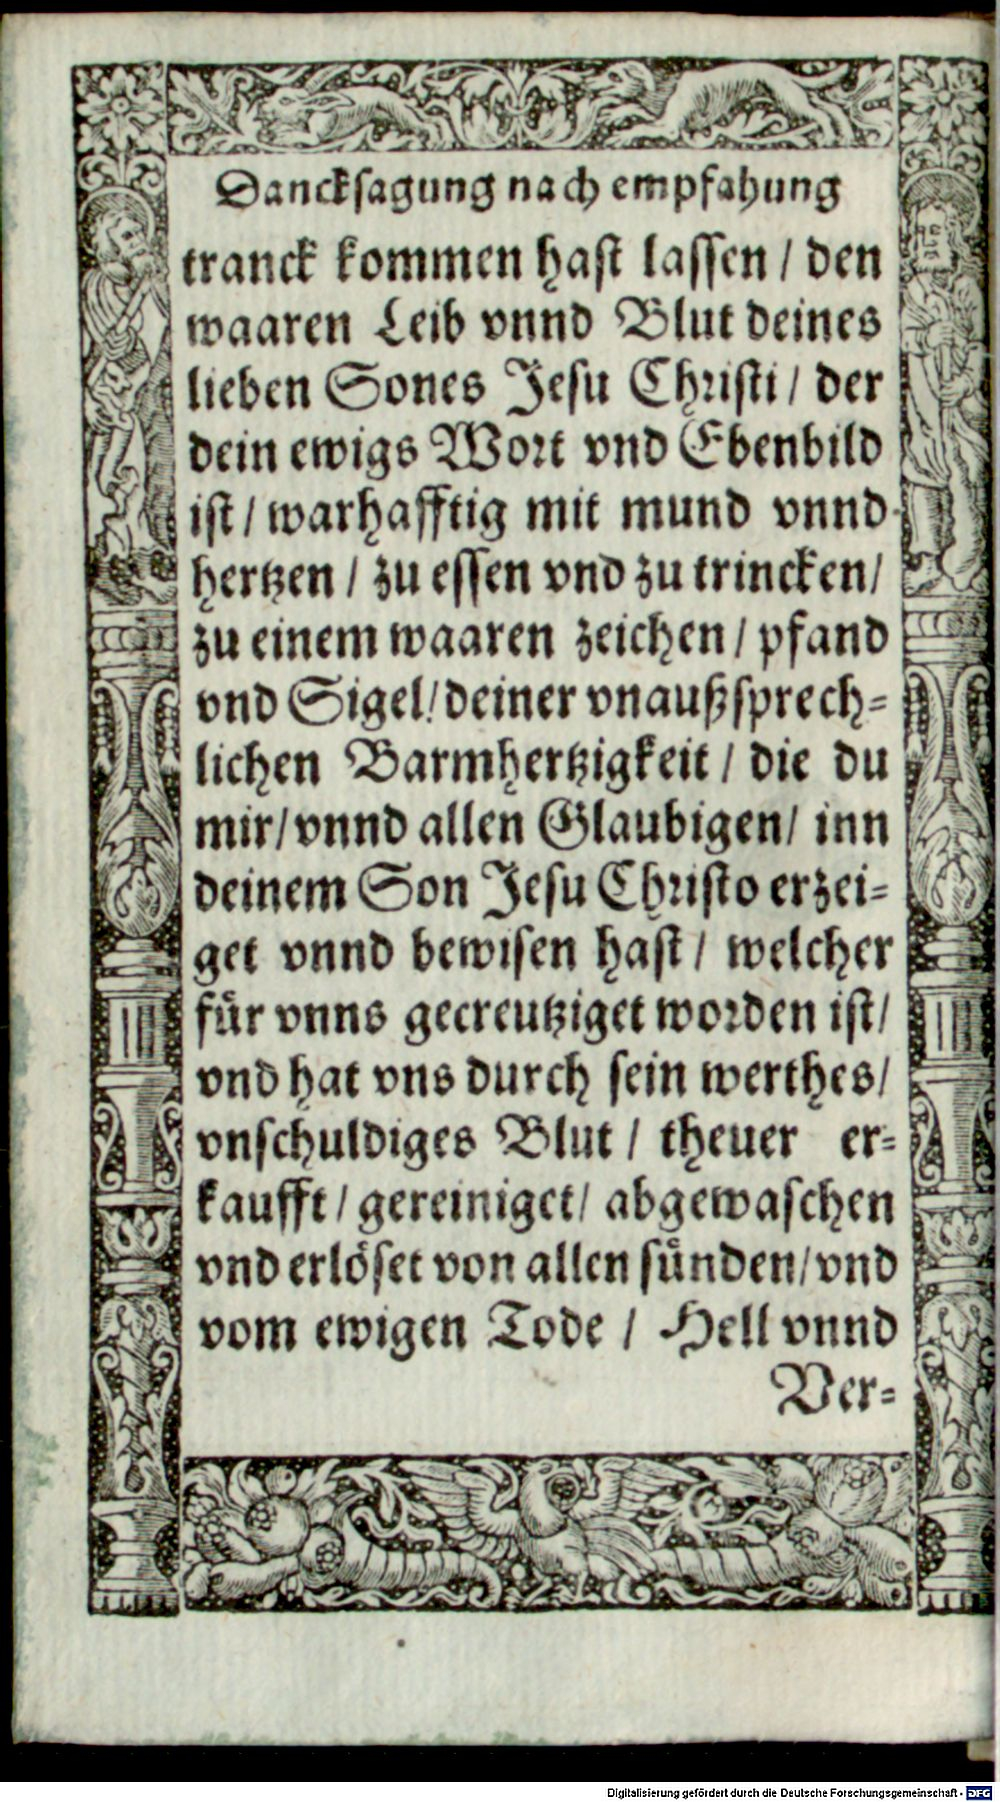 Dancksagung nach empfahung
tranck kommen hast lassen / den
waaren Leib vnnd Blut deines
lieben Sones Jesu Christi / der
dein ewigs Wort vnd Ebenbild
ist / warhafftig mit mund vnnd
hertzen / zu essen vnd zu trincken /
zu einem waaren zeichen / pfand
vnd Sigel / deiner vnaußsprech=
lichen Barmhertzigkeit / die du
mir / vnnd allen Glaubigen / inn
deinem Son Jesu Christo erzei=
get vnnd bewisen hast / welcher
fuͤr vnns gecreutziget worden ist /
vnd hat vns durch sein werthes /
vnschuldiges Blut / theuer er=
kaufft / gereiniget / abgewaschen
vnd erloͤset von allen suͤnden / vnd
vom ewigen Tode / Hell vnnd
Ver=
Digitalisierung gefördert durch die Deutsche Forschungsgemeinschaft - DFG